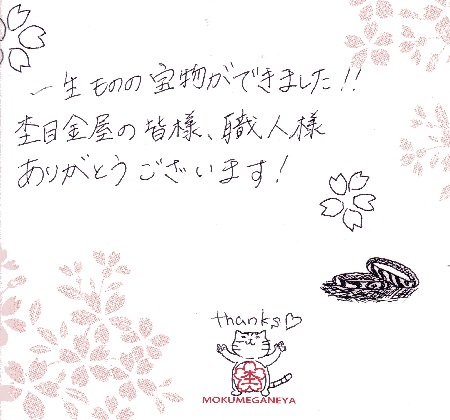 一生ものの宝物ができました!!
杢目金屋の皆様、職人様
ありがとうございます!
thanks♡
杢
MOKUMEGANEYA